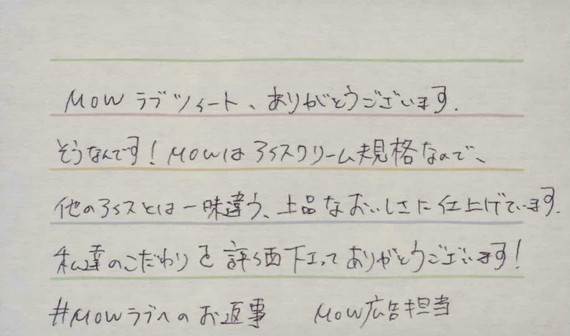 MOWラブツイート、ありがとうございます.
そうなんです!MOWはアイスクリーム規格なので、
他のアイスとは一味違う、上品なおいしさに仕上げています.
私達のこだわりを評価下さってありがとうございます!
#MOWラブへのお返事 MOW広告担当